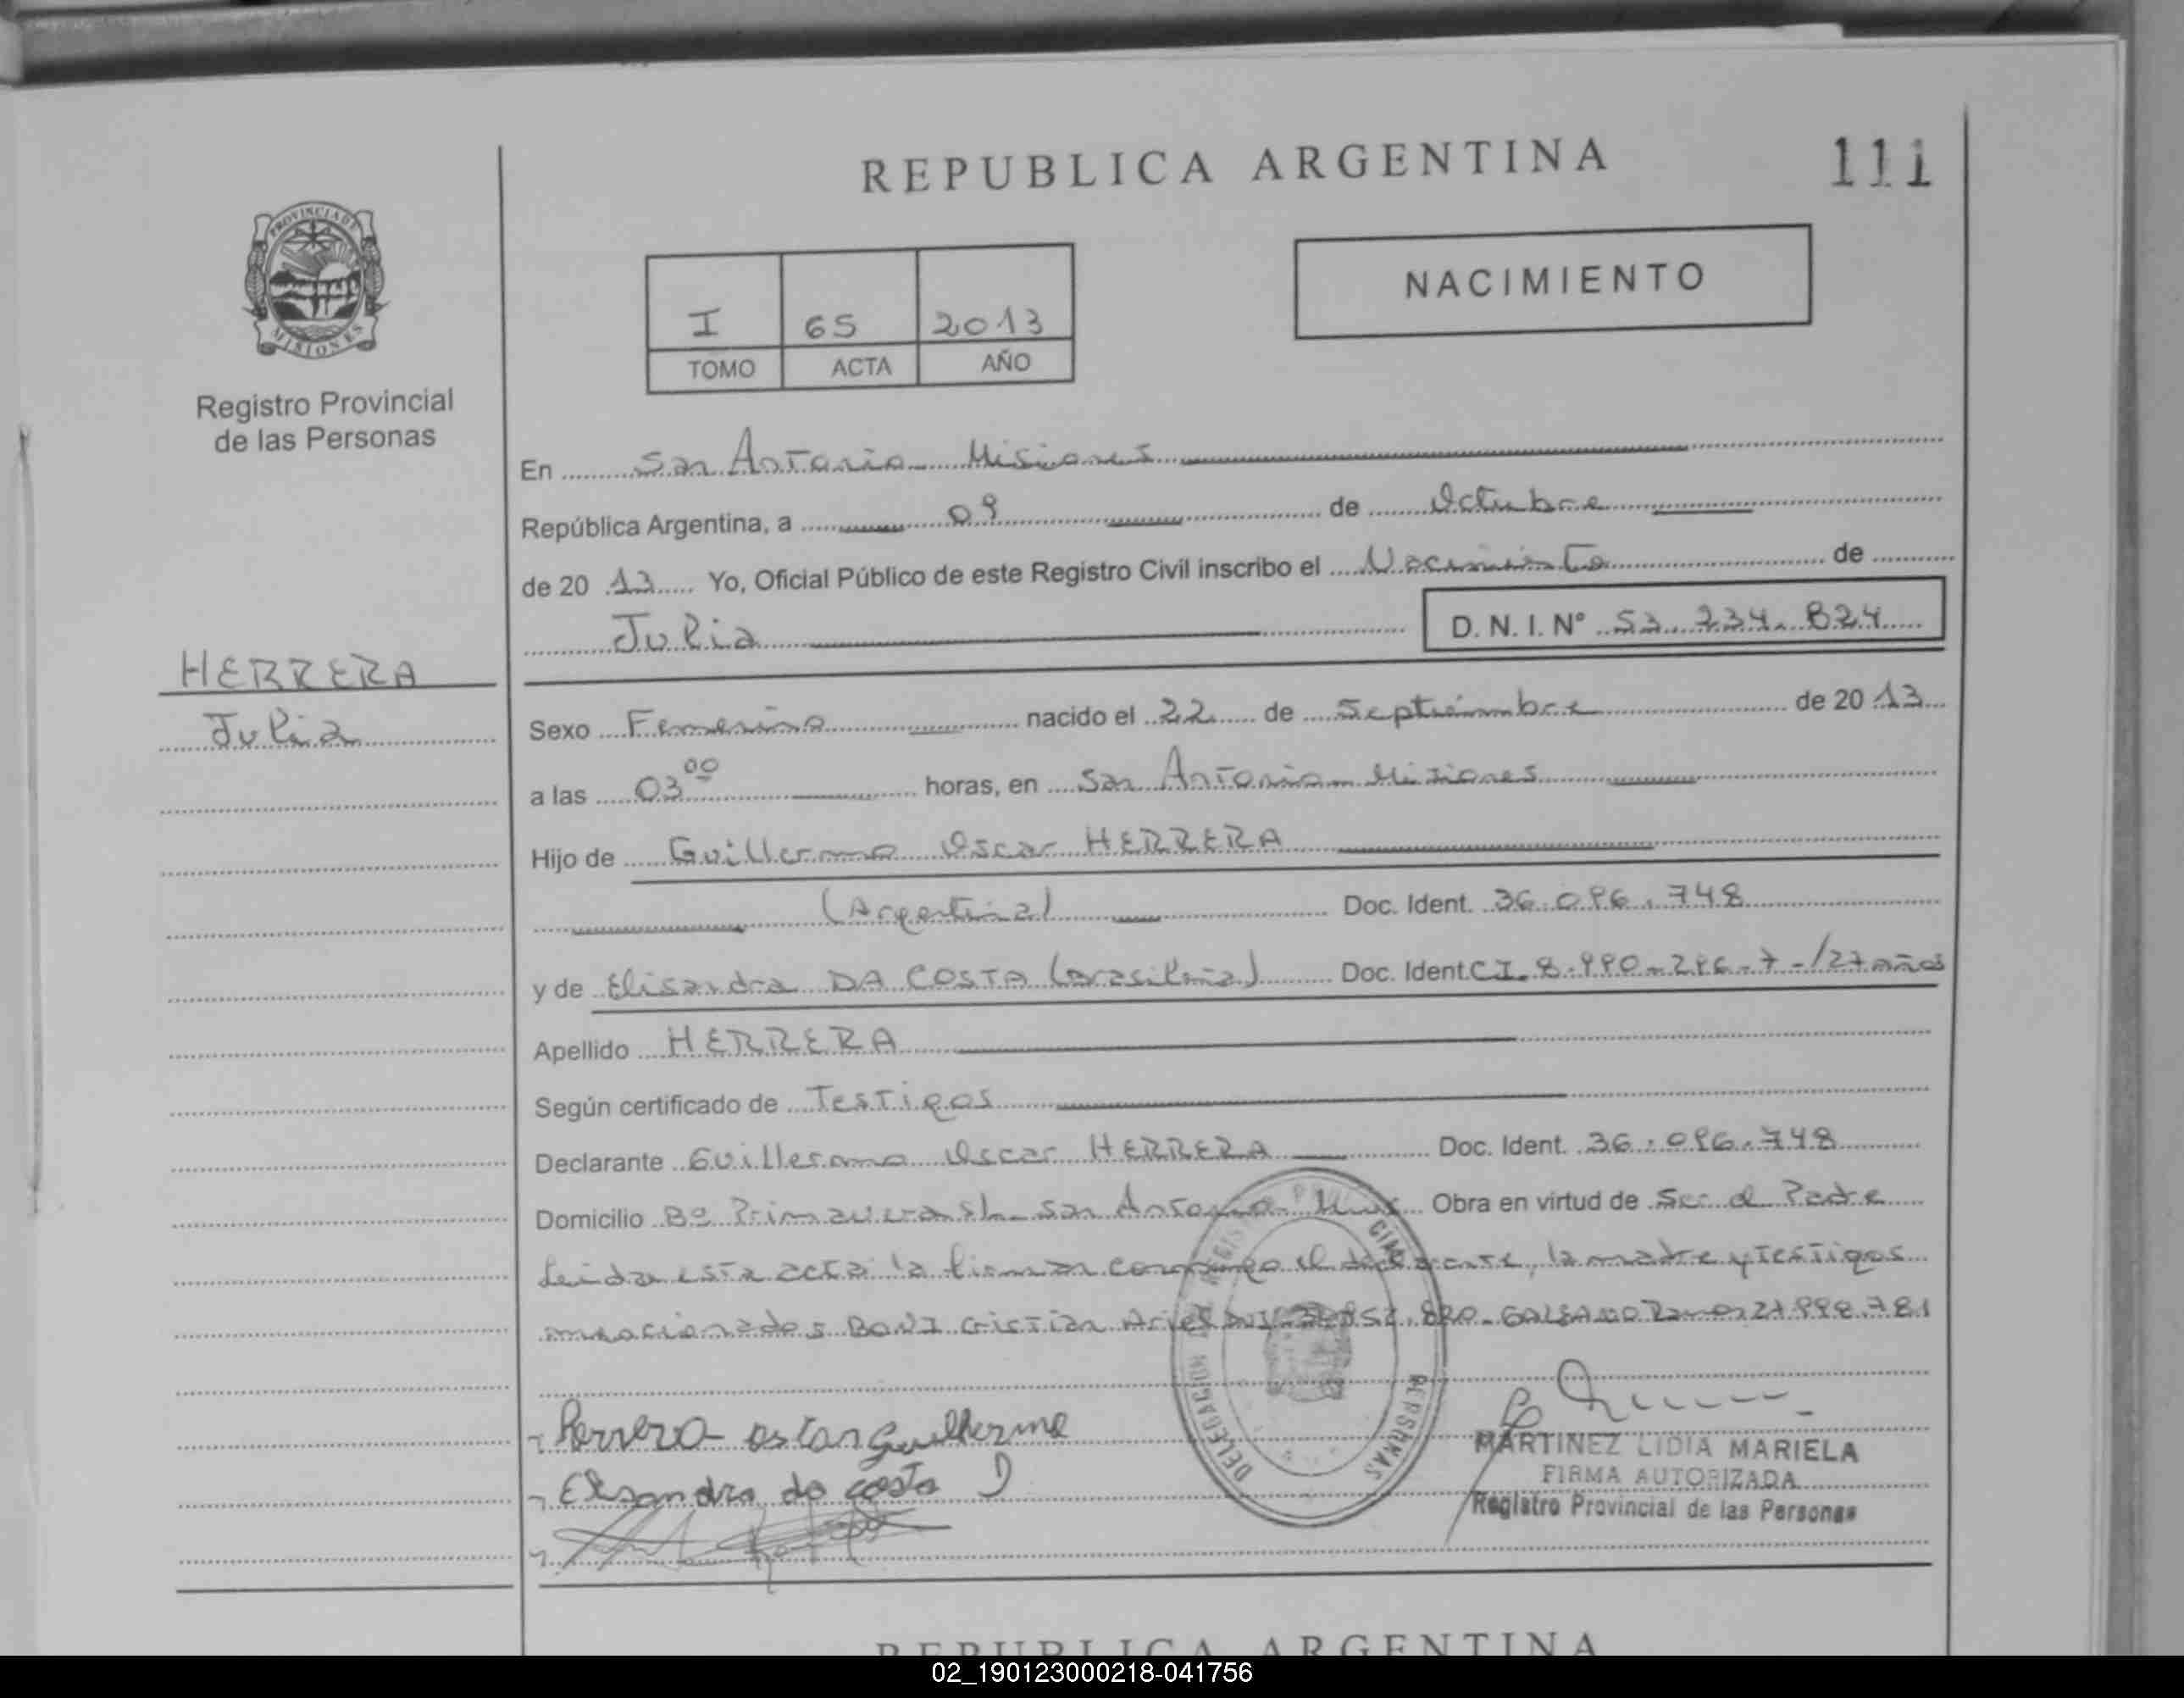 REPUBLICA ARGENTINA
111
PROVINCIA DE
MISIONES
Registro Provincial
de las Personas
NACIMIENTO
I 65 2013
TOMO ACTA AÑO
En San Antonio Misiones
República Argentina, a 09 de Octubre
de 20 13 Yo, Oficial Público de este Registro Civil inscribo el Nacimiento de
Julia D. N. I. N° 53.234.824
HERRERA
Julia
Sexo Femenino nacido el 22 de Septiembre de 20 13
a las 03 00 horas, en San Antonio Misiones
Hijo de Guillermo Oscar HERRERA
(Argentina) Doc. Ident. 36.096.748
y de Elisandra DA COSTA (brasileña) Doc. Ident. CI. 8.990-296-7-/27 años
Apellido HERRERA
Según certificado de Testigos
Declarante Guillermo Oscar HERRERA Doc. Ident. 36.096.748
Domicilio B° Primavera s/n San Antonio Mnes Obra en virtud de Ser el Padre
Leida esta acta la firman conmigo el declarante, la madre y testigos
mencionados BONI Cristian Ariel GALEANO Ramon 27.998.781
Herrera oscar Guillerme
Elisandra da costa
DELEGACION
PERSONAS
MARTINEZ LIDIA MARIELA
FIRMA AUTORIZADA
Registro Provincial de las Personas
REPUBLICA ARGENTINA
02_190123000218-041756